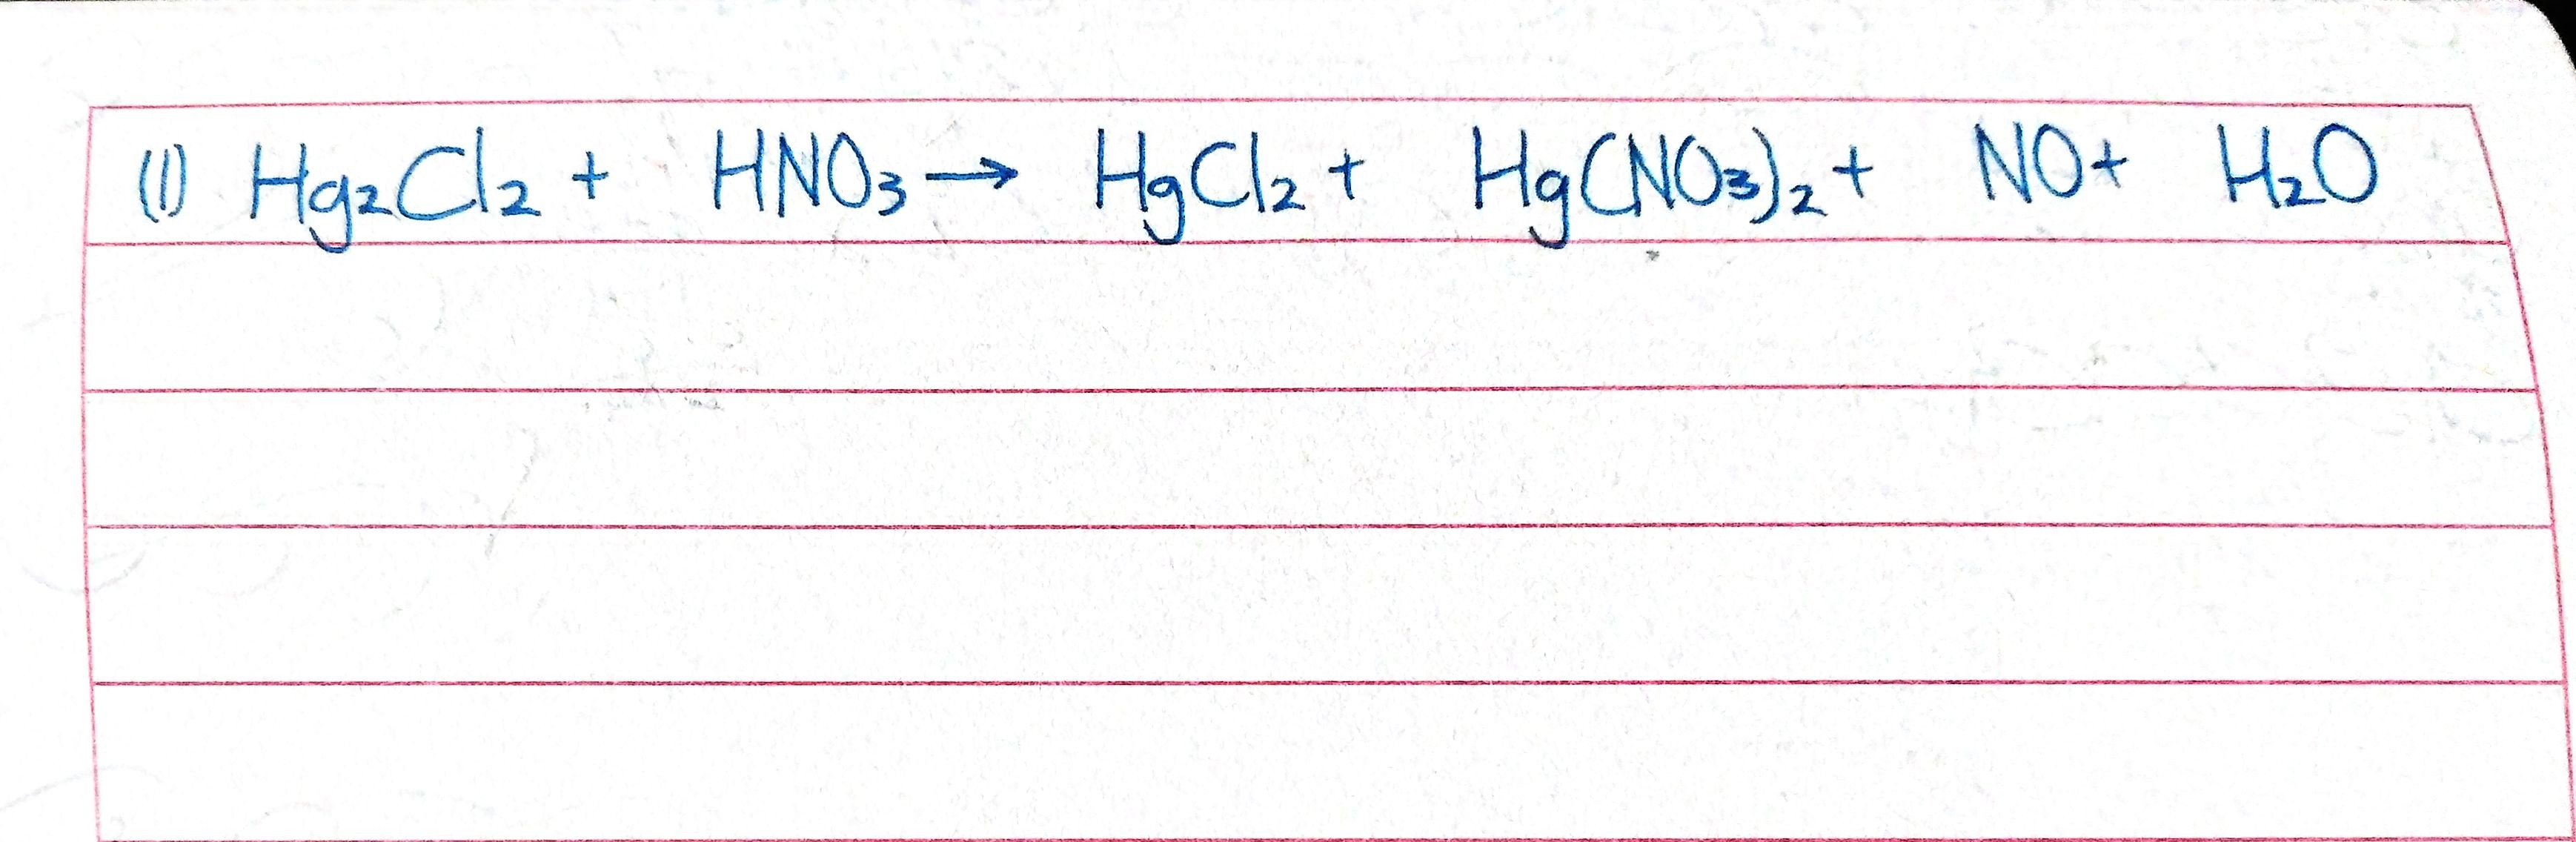 (1) Hg₂Cl₂ + HNO₃ → HgCl₂ + Hg(NO₃)₂ + NO + H₂O